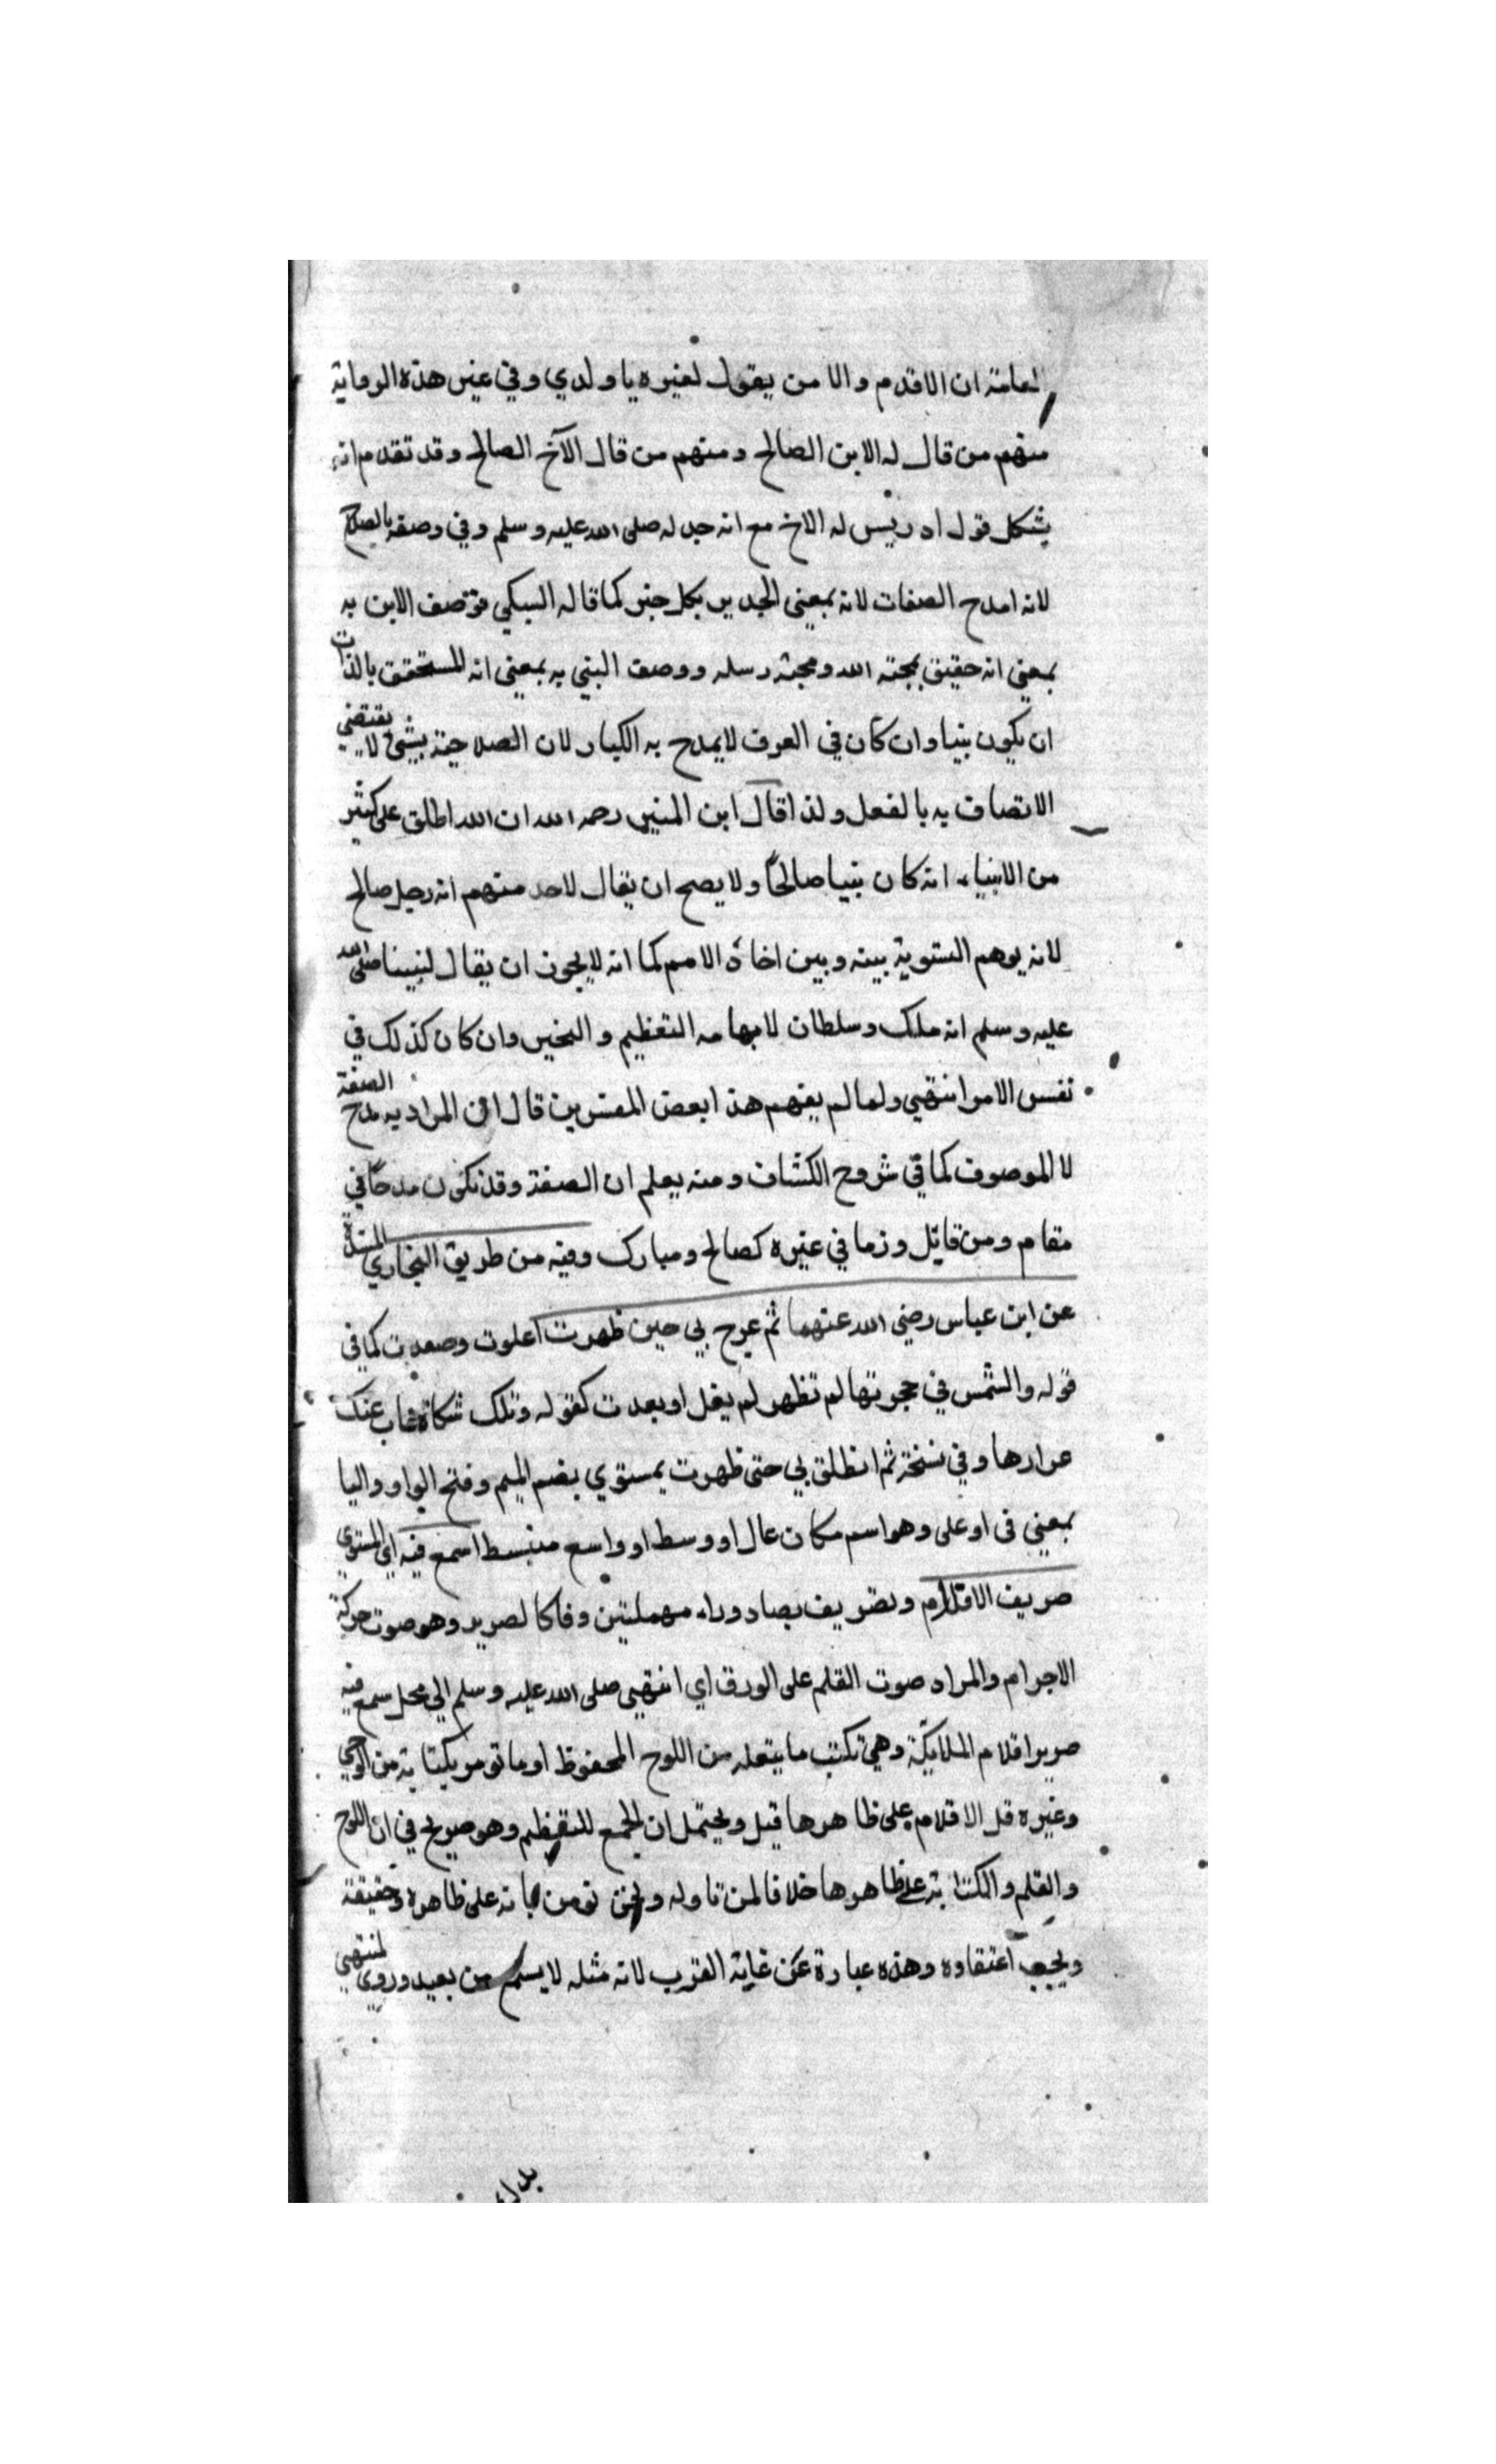 لعامته ان الاقدم والا من يقول لغيره يا ولدي وفي غير هذه الرواية
منهم من قال له الابن الصالح ومنهم من قال الآخ الصالح وقد تقدم انه
يشكل قول ادريس له الاخ مع انه جد له صلى الله عليه وسلم وفي وصفه بالصلاح
لانه امدح الصفات لانه بمعنى الجدير بكل خير كما قاله السبكي فوصف الابن به
بمعنى انه حقيق بمحبة الله ومحبة رسله ووصف النبي به بمعنى انه المستحقق بالذات
ان يكون نبيا وان كان في العرف لا يمدح به الكبار لان الصلاحية بشئ لا يقتضي
الاتصاف به بالفعل ولذا قال ابن المنير رحمه الله ان الله اطلق على كثير
من الانبياء انه كان نبيا صالحًا ولا يصح ان يقال لاحد منهم انه رجل صالح
لانه يوهم التسوية بينه وبين اخاه الامم كما انه لا يجوز ان يقال لنبينا صلى الله
عليه وسلم انه ملك وسلطان لابهامه التعظيم والتخير وان كان كذلك في
نفس الامر انتهي ولما لم يفهم هذا بعض المفسرين قال ان المراد به مدح الصفة
لا الموصوف كما في شروح الكشاف ومنه يعلم ان الصفة وقد تكون مدحًا في
مقام ومن قائل وذما في غيره كصالح ومبارك وفيه من طريق البخاري المسندة
عن ابن عباس رضي الله عنهما ثم عرج بي حين ظهرت اعلوت وصعدت كما في
قوله والشمس في حجرتها لم تظهر لم يعل او بعدت كقوله وتلك شكاة غاب عنك
عرارها وفي نسخة ثم انطلق بي حتى ظهرت بمستوي بضم الميم وفتح الواو واليا
بمعنى في او على وهو اسم مكان عال او وسط او واسع منبسط اسمع فيه اي المستوي
صريف الاقلام وتصريف بصاد وراء مهملتين وفا كالصرير وهو صوت حركة
الاجرام والمراد صوت القلم على الورق اي انتهي صلى الله عليه وسلم الي محل سمع فيه
صرير اقلام الملايكة وهي تكتب ما يتعله من اللوح المحفوظ او ما تومر بكتابته من الوحي
وغيره قل الاقلام على ظاهرها قيل ويحتمل ان الجمع للتعظيم وهو صريح في ان اللوح
والقلم والكتابة على ظاهرها خلافا لمن تاوله ونحن نومن بانه على ظاهره وحقيقة
ويجب اعتقاده وهذه عبارة عن غاية القرب لانه مثله لا يسمع من بعيد وروي لمنتهي